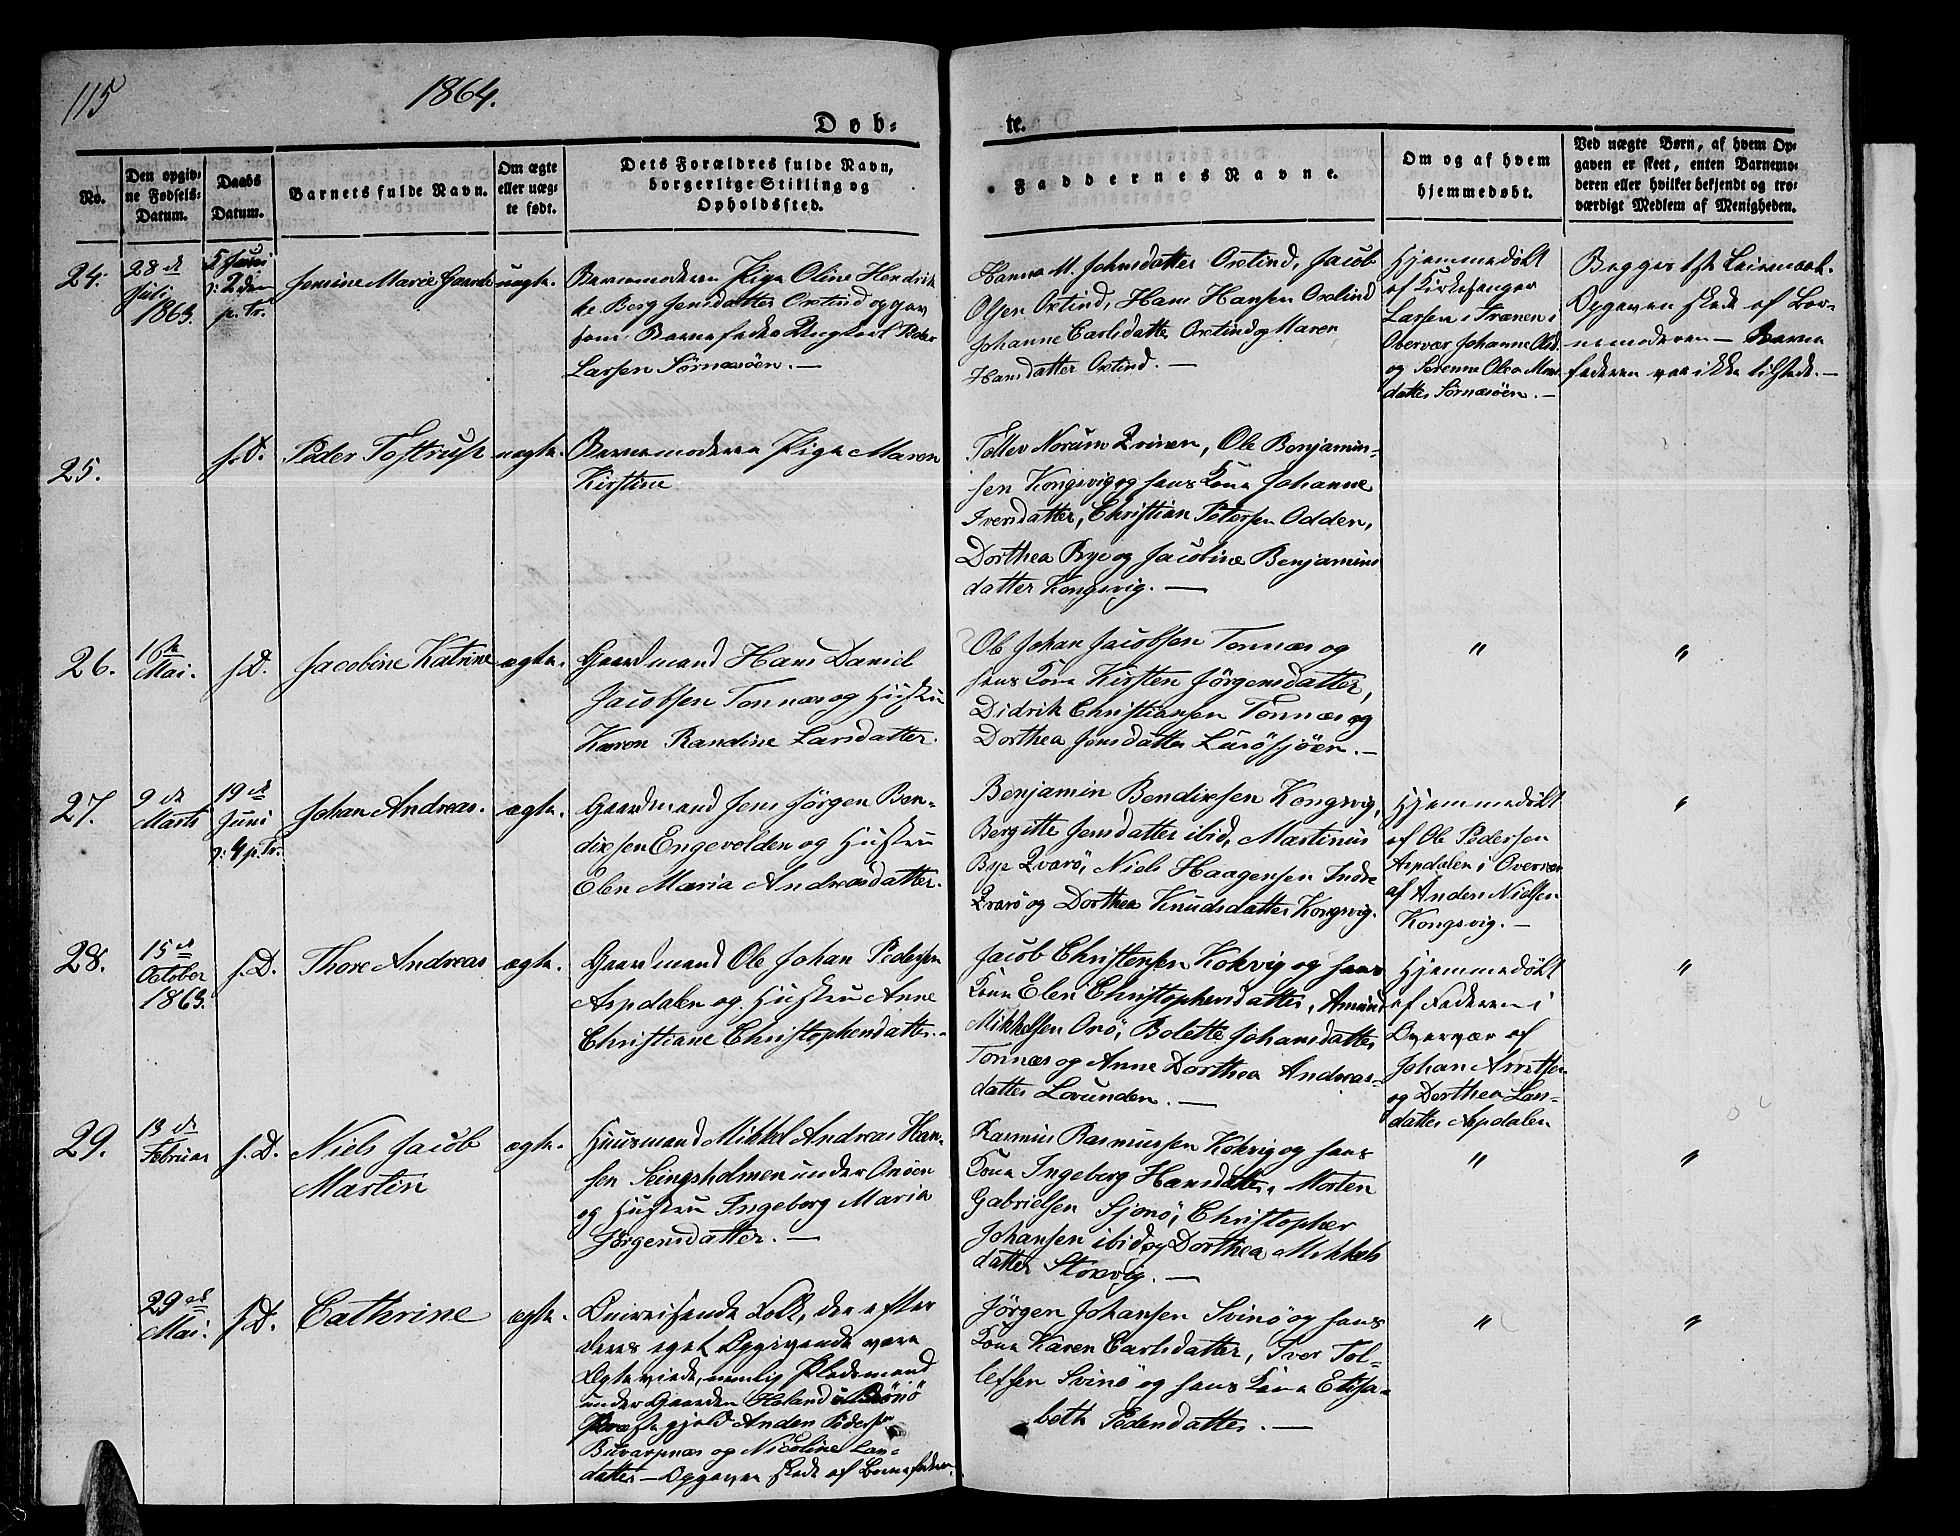 115
1864.
Døb-
te.
No.
Den opgiv-
ne Fødsels-
Datum.
Daabs
Datum.
Barnets fulde Navn.
Om ægte
eller uæg-
te født.
Dets Forældres fulde Navn,
borgerlige Stilling og
Opholdssted.
Faddernes Navne.
Om og af hvem
hjemmedøbt.
Ved uægte Børn, af hvem Op-
gaven er skeet, enten Barnemo-
deren eller hvilket bekjendt og tro-
værdigt Medlem af Menigheden.
24.
28de
Juli
1863.
5 Juni
2den
p. Tr.
Jensine Marie
uægte.
Barnemoderen Pige Oline Hendrik
ke Berg Jensdatter Oxtind og
som Barnefader Ungkarl Peder
Larsen Sørnæsøen. —
Hanna M. Johnsdatter Oxtind, Jacob
Olsen Oxtind, Hans Hansen Oxtind
Johanne Carlsdatter Oxtind og Maren
Hansdatter Oxtind. —
Hjemmedøbt
af Kirkesanger
Larsen i Trænen i
Overvær Johanne
og Serenne Olea
datter Sørnæsøen. —
Begges 1ste Leiermaal.
Opgaven skede af Bar-
nemoderen — Barne
faderen var ikke tilstede. —
25.
s. D.
Peder Tostrup
uægte.
Barnemoderen Pige Maren
Kirstine
Tollev Norum Qvinen, Ole Benjamin-
sen Kongsvig og hans Kone Johanne
Iversdatter, Christian Petersen Odden,
Dorthea Bye og Jacobine Benjamins
datter Kongsvig. —
26.
16de
Mai.
s. D.
Jacobine Katrine
ægte.
Gaardmand Hans Daniel
Jacobsen Tonnes og Hustru
Karen Randine Larsdatter.
Ole Johan Jacobsen Tonnes og
hans Kone Kirsten Jørgensdatter,
Didrik Christiansen Tonnes og
Dorthea Jensdatter Lurøsjøen. —
"
"
27.
9de
Marts
19de
Juni
4 p. Tr.
Johan Andreas.
ægte.
Gaardmand Jens Jørgen Ben-
dixsen Engevolden og Hustru
Elen Maria Andreasdatter.
Benjamin Bendixsen Kongsvig,
Bergitte Jensdatter ibid, Martinus
Bye Qvarø, Niels Haagensen Indre
Qvarø og Dorthea Knudsdatter Kongsvig.
Hjemmedøbt
af Ole Pedersen
Aspdalen i Overvær
af Anders Nielsen
Kongsvig. —
"
28.
15de
October
1863.
s. D.
Thore Andreas
ægte.
Gaardmand Ole Johan Pedersen
Aspdalen og Hustru Anne
Christiane Christophersdatter. -
Jacob Christensen Kokvig og hans
Kone Elen Christophersdatter, Amund
Mikkelsen Onø, Bolette Johansdatter
Tonnes og Anne Dorthea Andreas-
datter Lovunden. —
Hjemmedøbt
af Faderen i
Overvær af
Johan Arntsen
og Dorthea Lars-
datter Aspdalen
"
29.
13de
Februar
s. D.
Niels Jacob
Martin
ægte.
Huusmand Mikkel Andreas Han-
sen Seingsholmen under Onøen
og Hustru Ingeborg Maria
Jørgensdatter. —
Rasmus Rasmussen Kokvig og hans
Kone Ingeborg Hansdatter, Morten
Gabrielsen Sjonø, Christopher
Johansen ibid og Dorthea Mikkels
datter Storvig. —
"
"
29de
Mai.
s. D.
Cathrine
ægte.
Omreisende Folk, der efter
deres eget Opgivende vare
Ægteviede, nemlig Pladsmand
under Gaarden Høland i Brønø
Præstegjeld Anders Pedersen
og Nicoline Lars-
datter — Opgaven skede af Barnefaderen.
Jørgen Johansen Svinø og hans
Kone Karen Carlsdatter, Iver Tol-
lefsen Svinø og hans Kone Elisa-
beth Pedersdatter. —
"
"